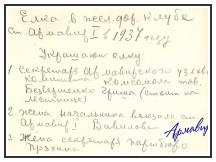 Елка в жел.дор. Клубе
ст. Армавир I в 1937 году
Украшают елку
1 секретарь Армавирского узлов.
комитета комсомола тов.
Безверхенко Гриша (стоит на
лестнице)
2 жена начальника вокзала ст.
Армавир I Вавилова
3 жена секретаря партбюро
Армавир